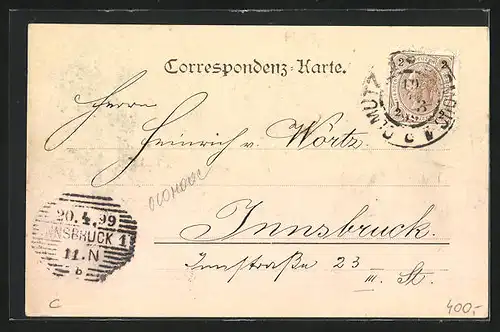 Correspondenz-Karte.
2 2
OLMÜTZ
Herrn
Heinrich v. Wörtz.
OLOMOUC
Innsbruck.
20.4.99
INNSBRUCK 1
11.N
b
Innstraße 23
III. St.
C
400,-